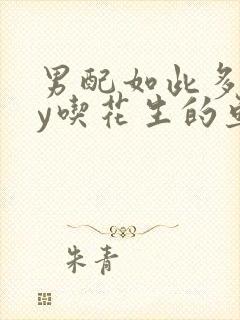 男配如此多
y喫花生的
朱青